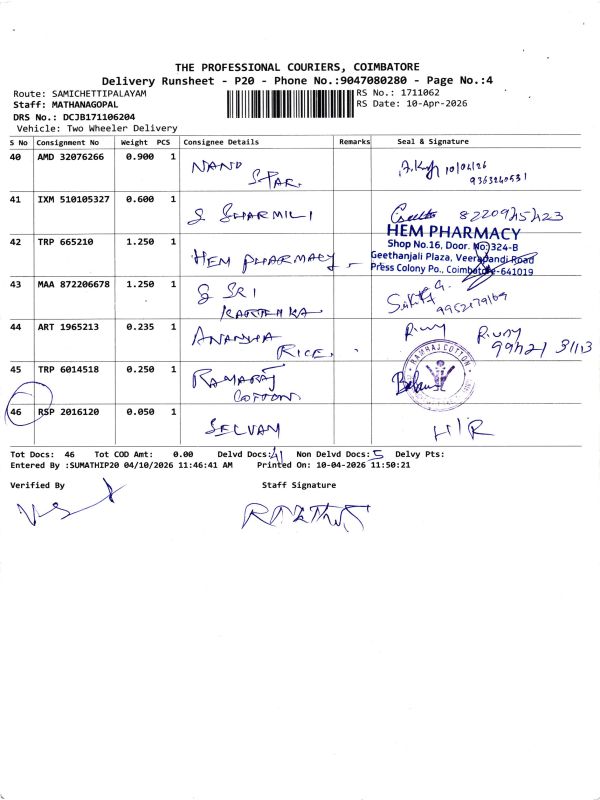 THE PROFESSIONAL COURIERS, COIMBATORE
Delivery Runsheet - P20 - Phone No.:9047080280 - Page No.:4
Route: SAMICHETTIPALAYAM RS No.: 1711062
Staff: MATHANAGOPAL RS Date: 10-Apr-2026
DRS No.: DCJB171106204
Vehicle: Two Wheeler Delivery
S No Consignment No Weight PCS Consignee Details Remarks Seal & Signature
40 AMD 32076266 0.900 1 NAND STAR 10/04/26
9363240531
41 IXM 510105327 0.600 1 S SHARMILI
HEM PHARMACY
Shop No.16, Door. No.324-B
Geethanjali Plaza, Veerapandi Road
Press Colony Po., Coimbatore-641019
42 TRP 665210 1.250 1 HEM PHARMACY
43 MAA 872206678 1.250 1 S SRI KARTHIKA
44 ART 1965213 0.235 1 ANANYA RICE.
RAMRAJ COTTON
45 TRP 6014518 0.250 1 RAMARAJ COTTON
46 RSP 2016120 0.050 1 SELVAM H/R
Tot Docs: 46 Tot COD Amt: 0.00 Delvd Docs: 41 Non Delvd Docs: 5 Delvy Pts:
Entered By :SUMATHIP20 04/10/2026 11:46:41 AM Printed On: 10-04-2026 11:50:21
Verified By Staff Signature